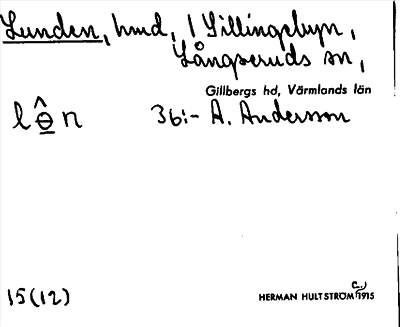 Lunden, hmd, 1 Sillingebyn,
Långseruds sn,
Gillbergs hd, Värmlands län
lɵ̂n 36:- A. Andersson
15(12)
HERMAN HULTSTRÖM 1915